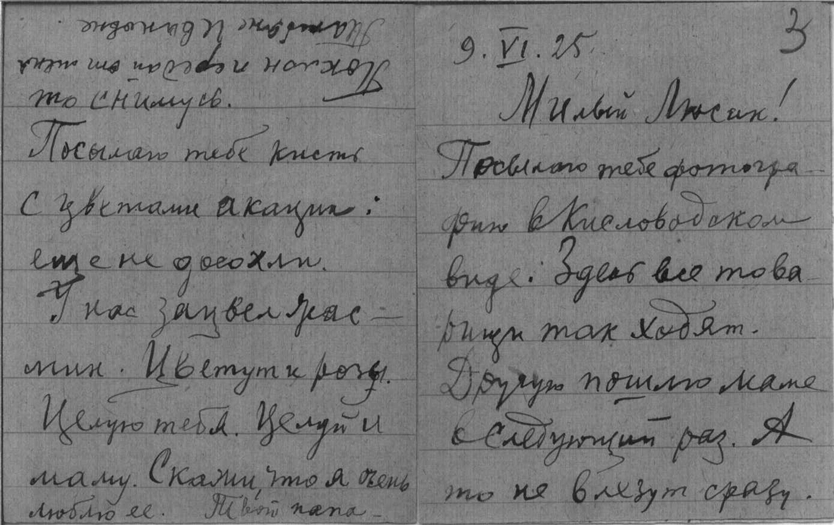 3
9.VI.25.
Милый Люсик!
Посылаю тебе фотогра-
фию в Кисловодском
виде: Здесь все това
рищи так ходят.
Другую пошлю маме
в следующий раз. А
то не влезут сразу.
то снимусь.
Посылаю тебе кисть
с цветами акации:
еще не досохли.
У нас зацвел жас-
мин. Цветут и розы.
Целую тебя. Целуй и
маму. Скажи, что я очень
люблю ее. Твой папа-
Поклон передай от меня
Татьяне Ивановне.